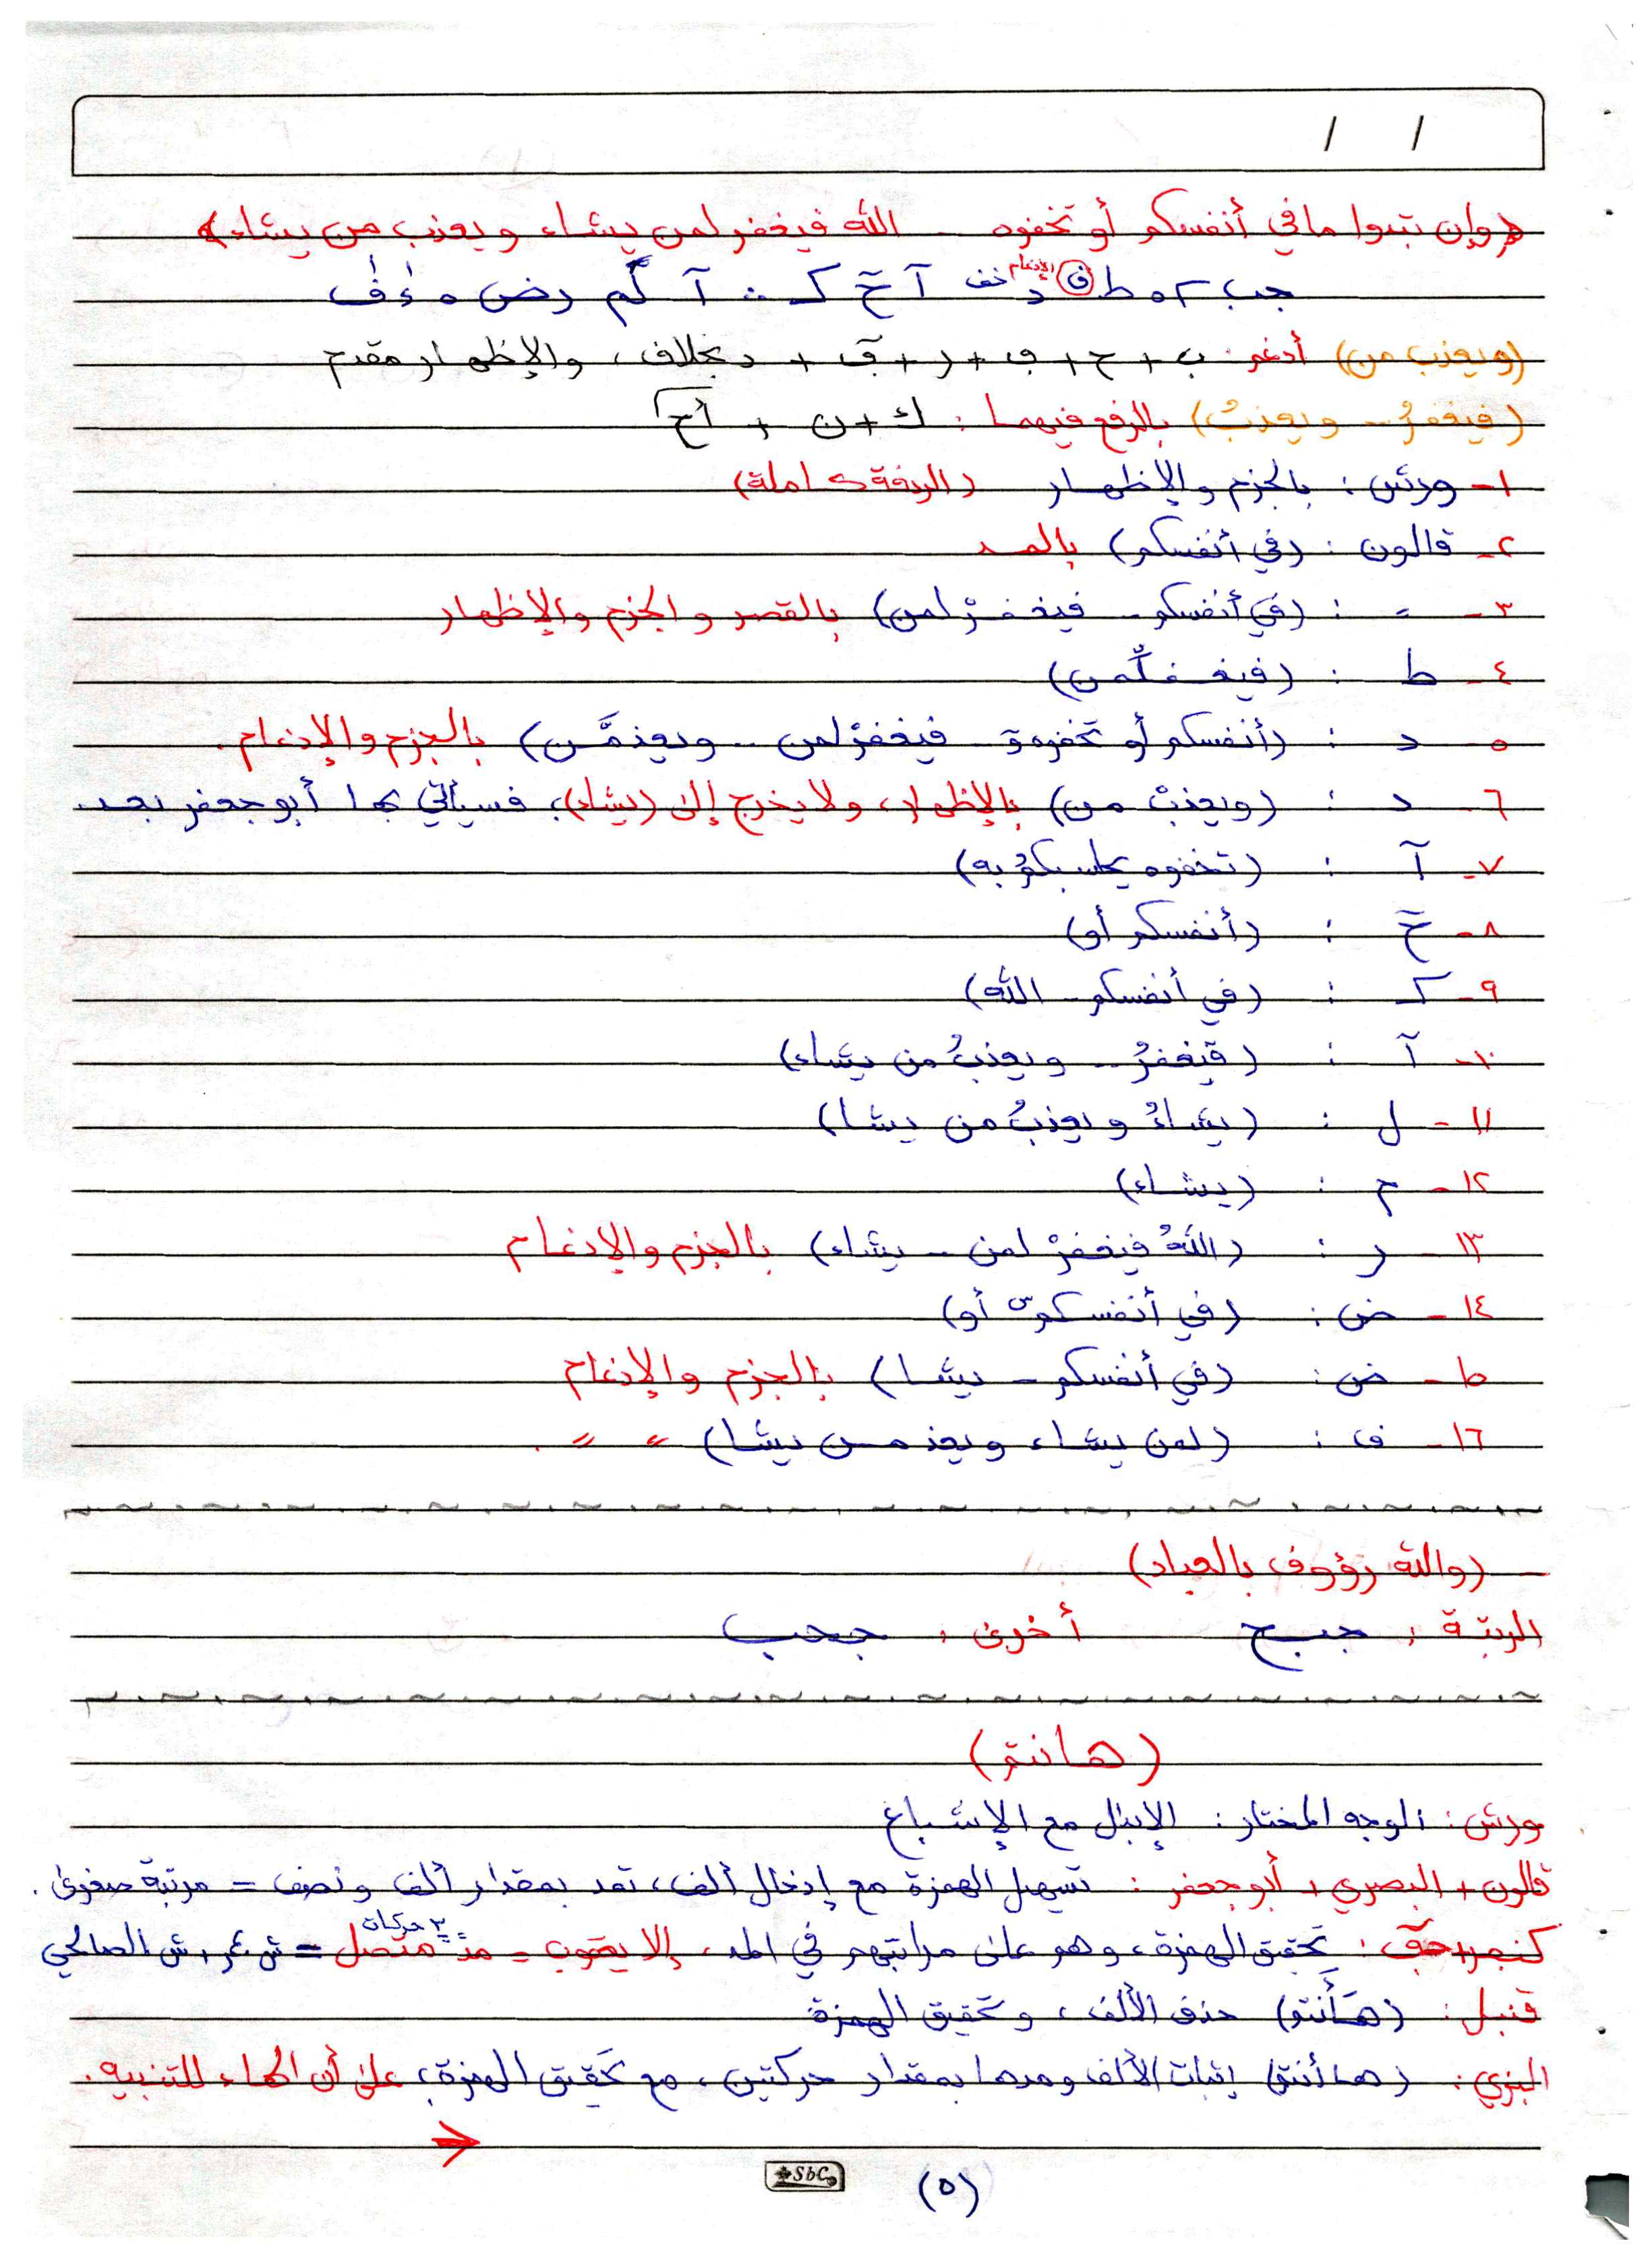 / /
﴿وإن تبدوا ما في أنفسكم أو تخفوه ... الله فيغفر لمن يشاء ويعذب من يشاء﴾
(ويعذب من) أدغم: ب + ح + ف + ر + ق + د بخلاف، والإظهار مقدم
(فيغفرُ .. ويعذبُ) بالرفع فيهما: ك + ن +
١- ورش: بالجزم والإظهار (الوقفة كاملة)
٢- قالون: (في أنفسكم) بالمد
٣- = : (في أنفسكم - فيغفرْ لمن) بالقصر والجزم والإظهار
٤- ط : (فيغفلّمن)
٥- د : (أنفسكم أو تخفوهۥ فيغفرْ لمن .. ويعذمَّن) بالجزم والإدغام.
٦- د : (ويعذبْ من) بالإظهار، ولا يخرج إلى (يشاء)؛ فسيأتي بها أبو جعفر بعد.
٧- آ : (تخفوه يحاسبكم به)
٨- حٓ : (أنفسكم أو)
٩- ك : (في أنفسكم - الله)
١٠- آ : (فيغفرُ .. ويعذبُ من يشاء)
١١- ل : (يشاءُ ويعذبُ من يشا)
١٢- م : (يشاء)
١٣- ر : (اللهُ فيغفرْ لمن - يشاء) بالجزم والإدغام
١٤- ض : (في أنفسكمْ س أو)
١٥- ض : (في أنفسكم - يشا) بالجزم والإدغام
١٦- ف : (لمن يشاء ويعذ مـن يشا) = = .
(والله رؤوف بالعباد)
المرتبة: جبح أخرى: جحب
(هانتم)
ورش: الوجه المختار: الإبدال مع الإشباع
قالون + البصري + أبو جعفر: تسهيل الهمزة مع إدخال ألف، تمد بمقدار ألف ونصف = مرتبة صغرى.
تحقيق الهمزة، وهو على مراتبهم في المد، إلا يعقوب = مدّ ٣ حركات متصل = ش عمر، ش الصالحي
قنبل: (هَأَنتم) حذف الألف، وتحقيق الهمزة
البزي: (هاأنتم) إثبات الألف ومدها بمقدار حركتين، مع تحقيق الهمزة؛ على أن الهاء للتنبيه.
SbC
(٥)